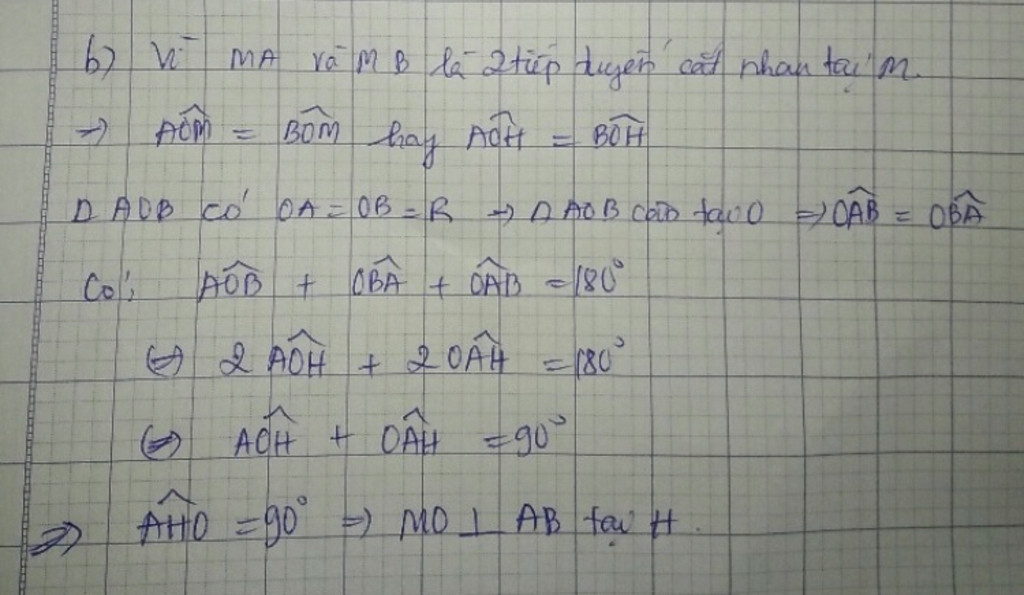 b) Vì MA và MB là 2 tiếp tuyến cắt nhau tại M.
→ AÔM = BÔM hay AÔH = BÔH
Δ AOB có OA = OB = R → Δ AOB cân tại O ⇒ OÂB = OB̂A
Có: AÔB + OB̂A + OÂB = 180°
⇔ 2 AÔH + 2 OÂH = 180°
⇔ AÔH + OÂH = 90°
⇒ AĤO = 90° ⇒ MO ⊥ AB tại H.